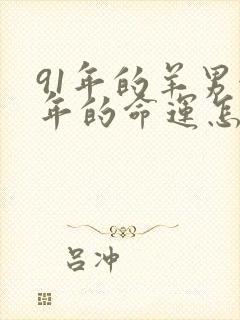 91年的羊男
年的命运怎
吕冲